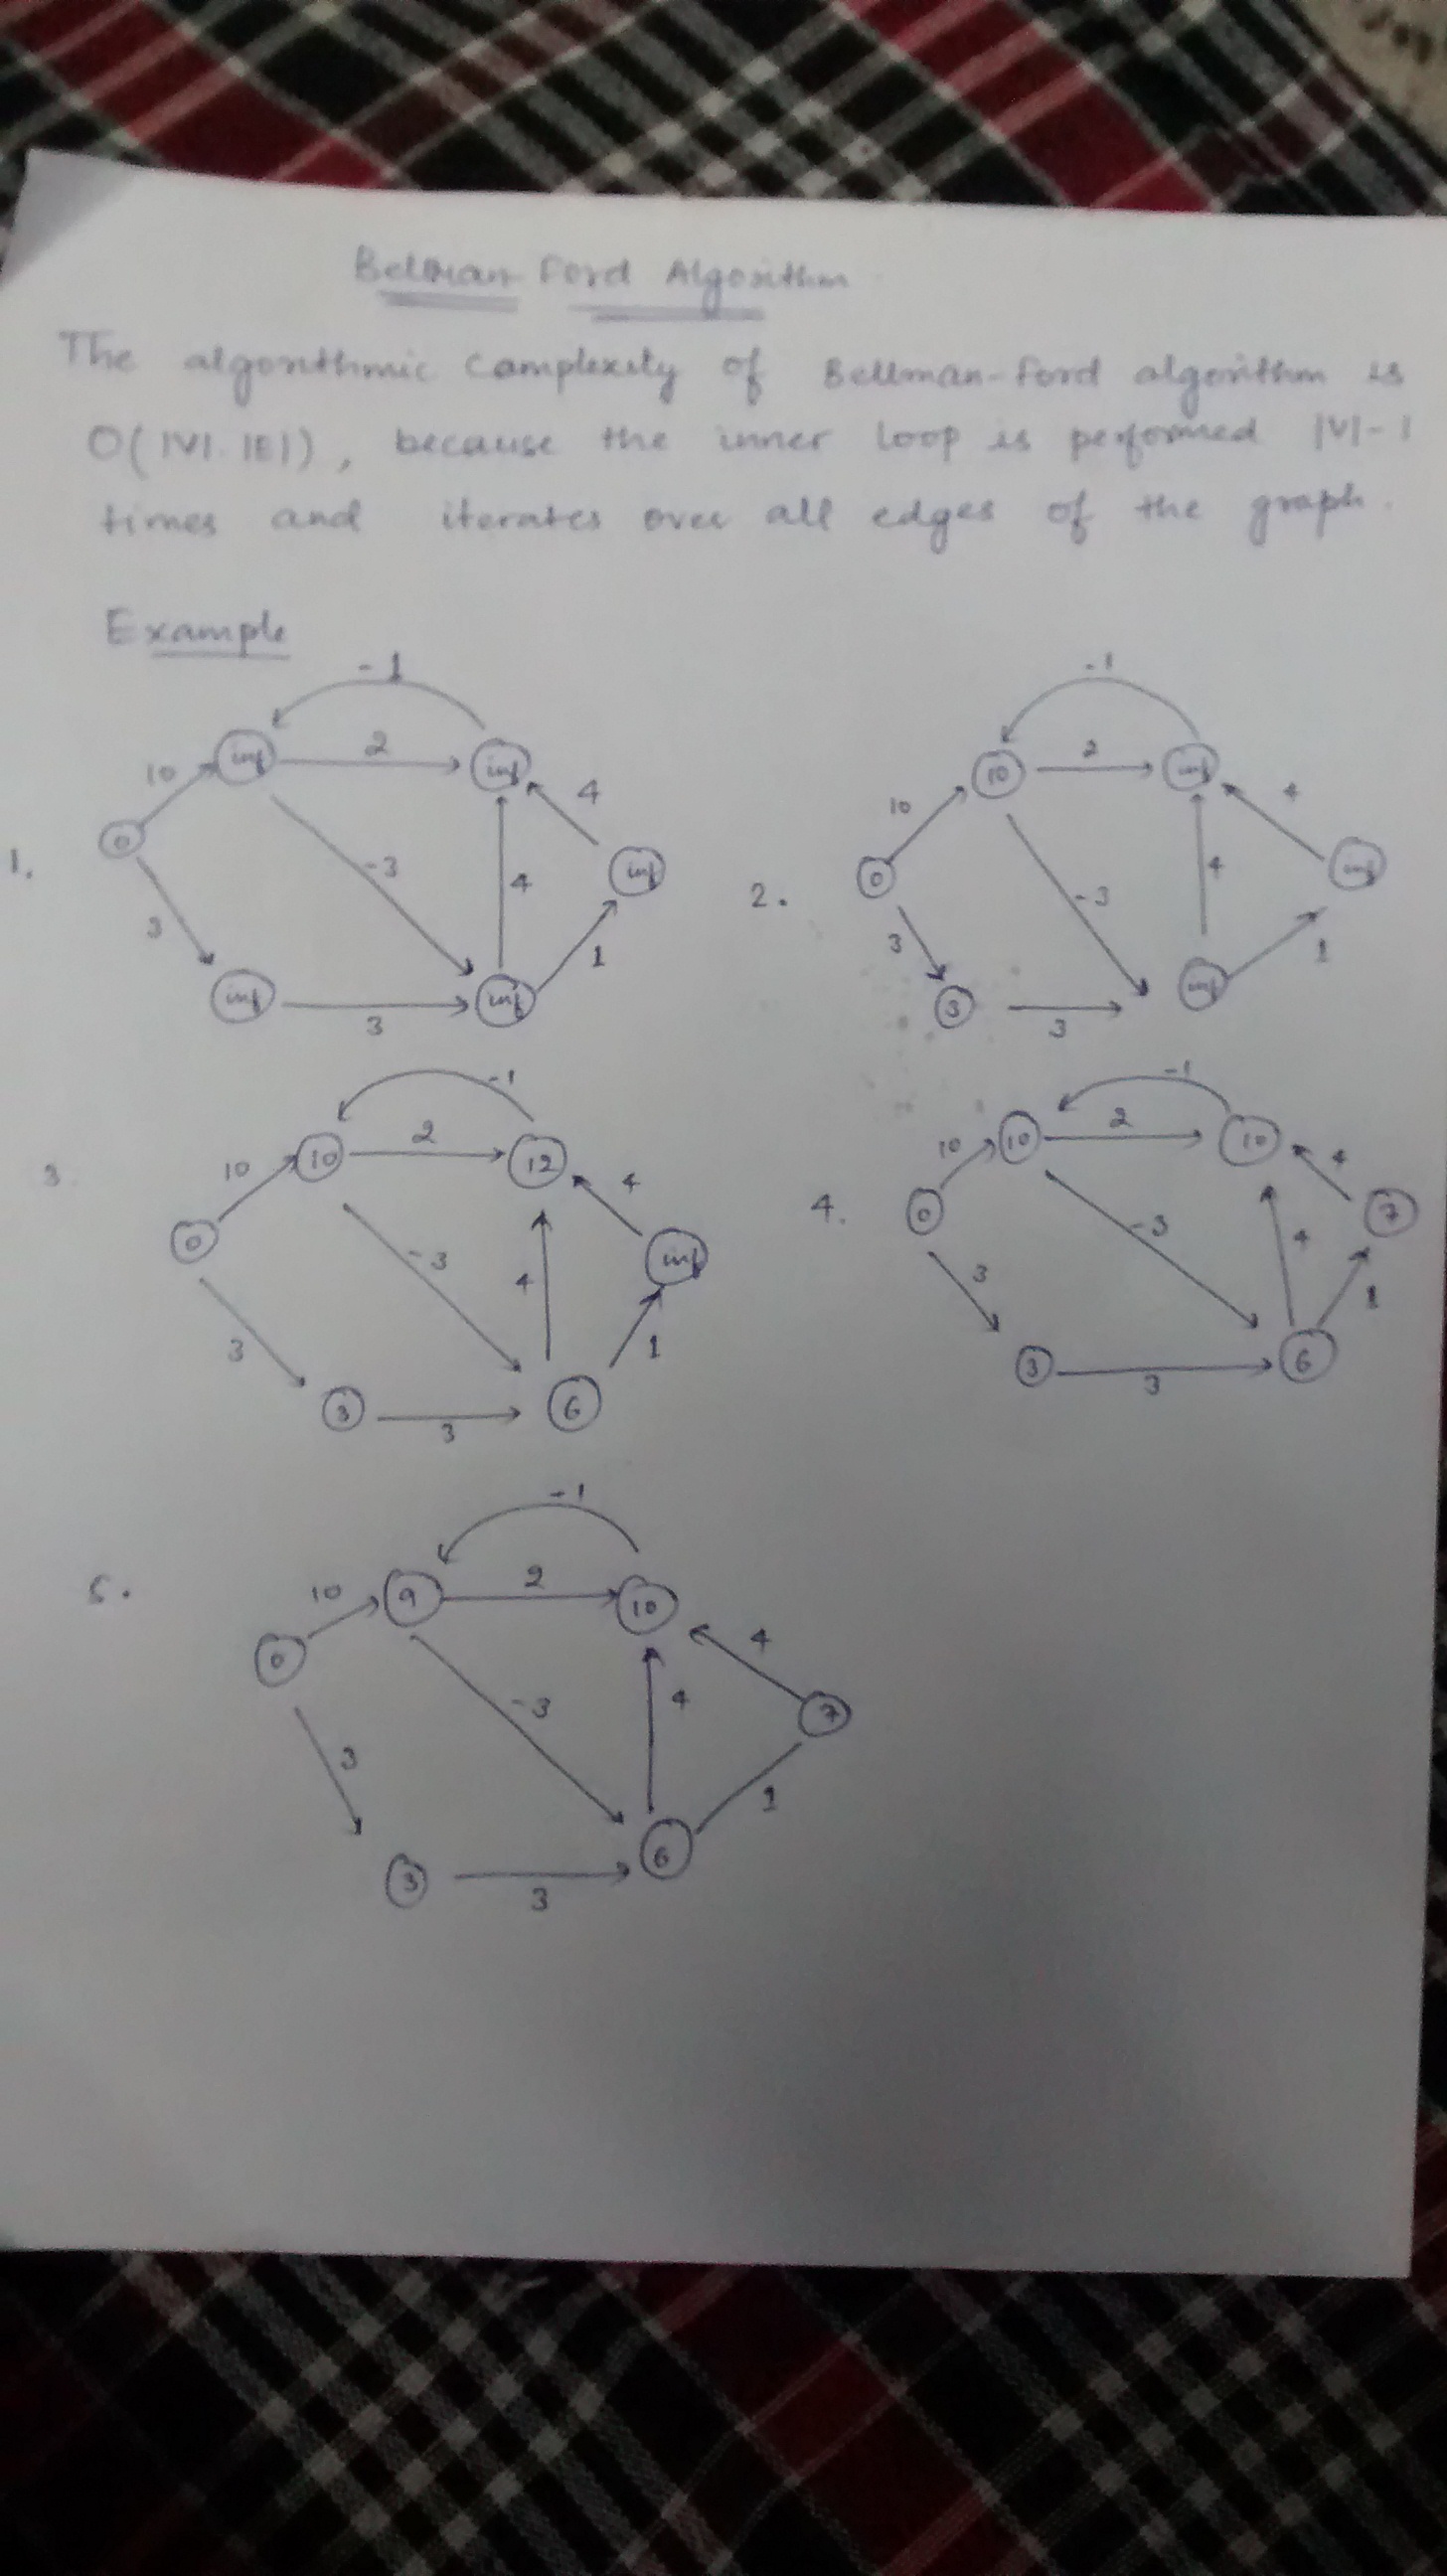 Bellman Ford Algorithm
The algorithmic complexity of Bellman-Ford algorithm is
O(|V|.|E|), because the inner loop is performed |V|-1
times and iterates over all edges of the graph.
Example
-1
10 inf 2 inf 4
1. 0 -3 4 inf
3 inf 3 inf 1
-1
10 10 2 inf 4
2. 0 -3 4 inf
3 3 3 inf 1
-1
10 10 2 12 4
3. 0 -3 4 inf
3 3 3 6 1
-1
10 10 2 10 4
4. 0 -3 4 7
3 3 3 6 1
-1
10 9 2 10 4
5. 0 -3 4 7
3 3 3 6 1